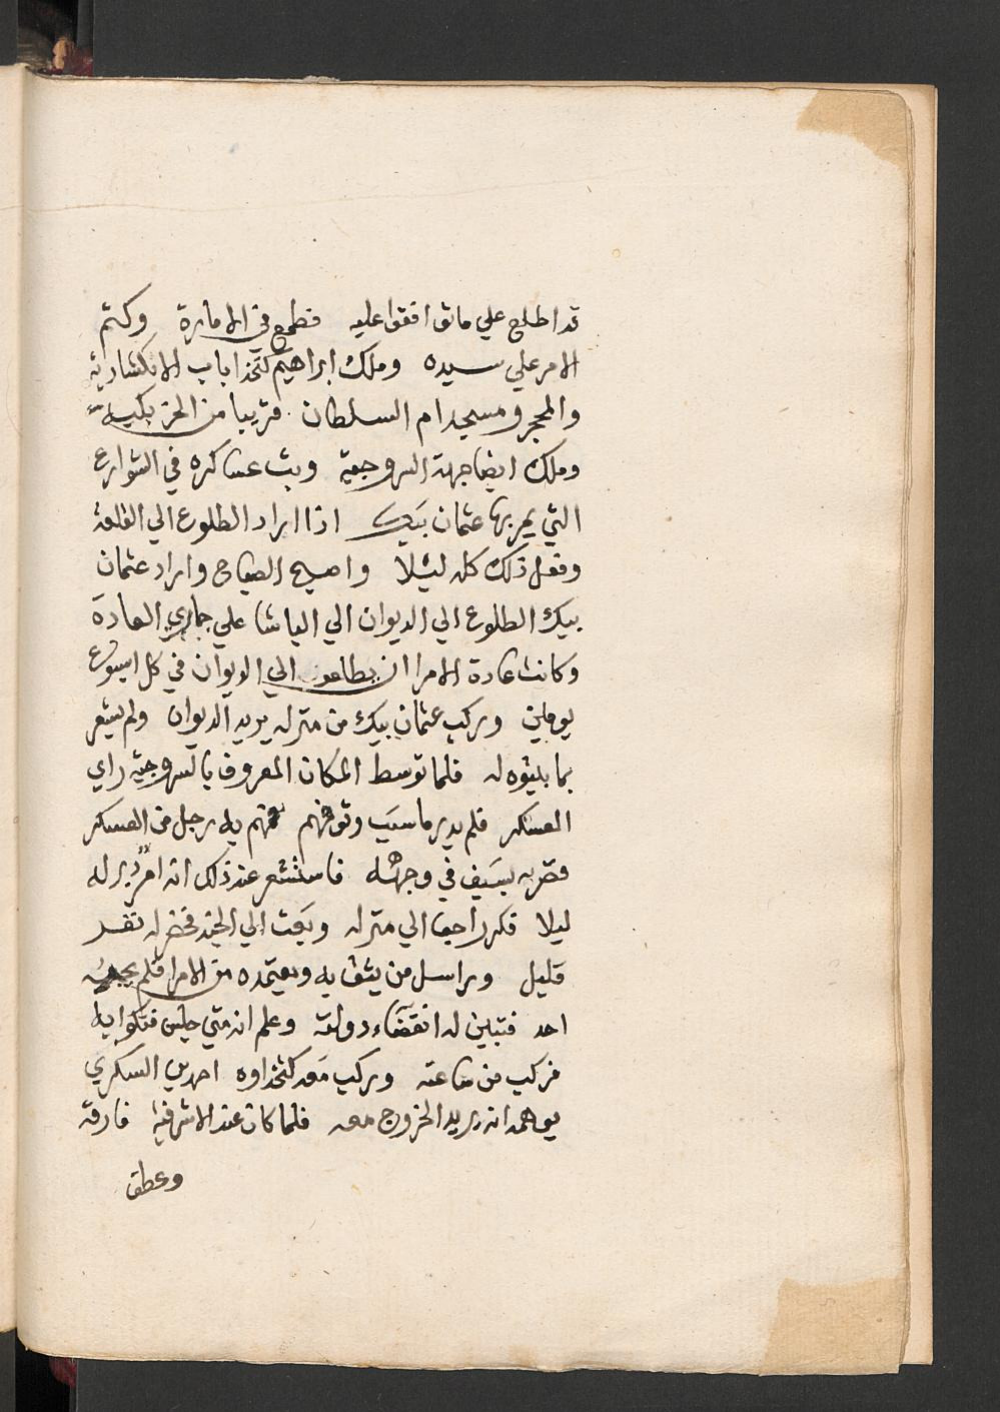 قد اطلع علي ما توافقوا عليه فطمع في الامارة وكتم
الامر علي سيده وملك ابراهيم كتخدا باب الانكشارية
والمحجر ومسجد ام السلطان قريبا من
وملك ايضا جهة السروجية وبث عساكره في الشوارع
التي يمر بها عثمان بيك اذا اراد الطلوع الي القلعة
وفعل ذلك كله ليلا واصبح الصباح واراد عثمان
بيك الطلوع الي الديوان الي الباشا علي جاري العادة
وكانت عادة الامرا ان يطلعون الي الديوان في كل اسبوع
يومين وركب عثمان بيك من منزله يريد الديوان ولم يشعر
بما بيتوه له فلما توسط المكان المعروف بالسروجية راي
العسكر فلم يدر ما سبب وقوفهم فهم به رجل من العسكر
فضربه بسيف في وجهه فاستشعر عند ذلك انه امر دبر له
ليلا فكر راجعا الي منزله وبعث الي الجند فحضر له نفر
قليل وراسل من يثق به ويعتمده من الامرا فلم يجبه
احد فتبين له انقضاء دولته وعلم انه متي جلس فتكوا به
فركب من ساعته وركب معه كتخداوه احمد السكري
يوهمه انه يريد الخروج معه فلما كان عند الاشرفية فارقه
وعطف